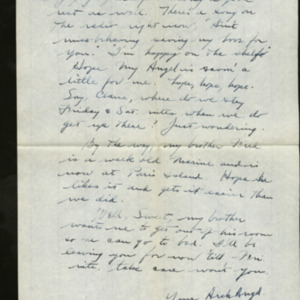 just as well. There's a song on
the radio right now, "Ain't
misbehaving saving my love for
you." "I'm happy on the shelf"
Hope My Angel is savin' a
little for me, hope, hope, hope.
Say where do we stay
Friday & Sat. nites when we do
get up there? Just wondering.
By the way, my brother
is a week old Marine and is
now at Paris Island. Hope he
likes it and gets it easier than
we did.
Well, Sweet, my brother
wants me to get out of his room
so he can go to bed. I'll be
leaving you for now till
nite, take care won't you.
Yours,